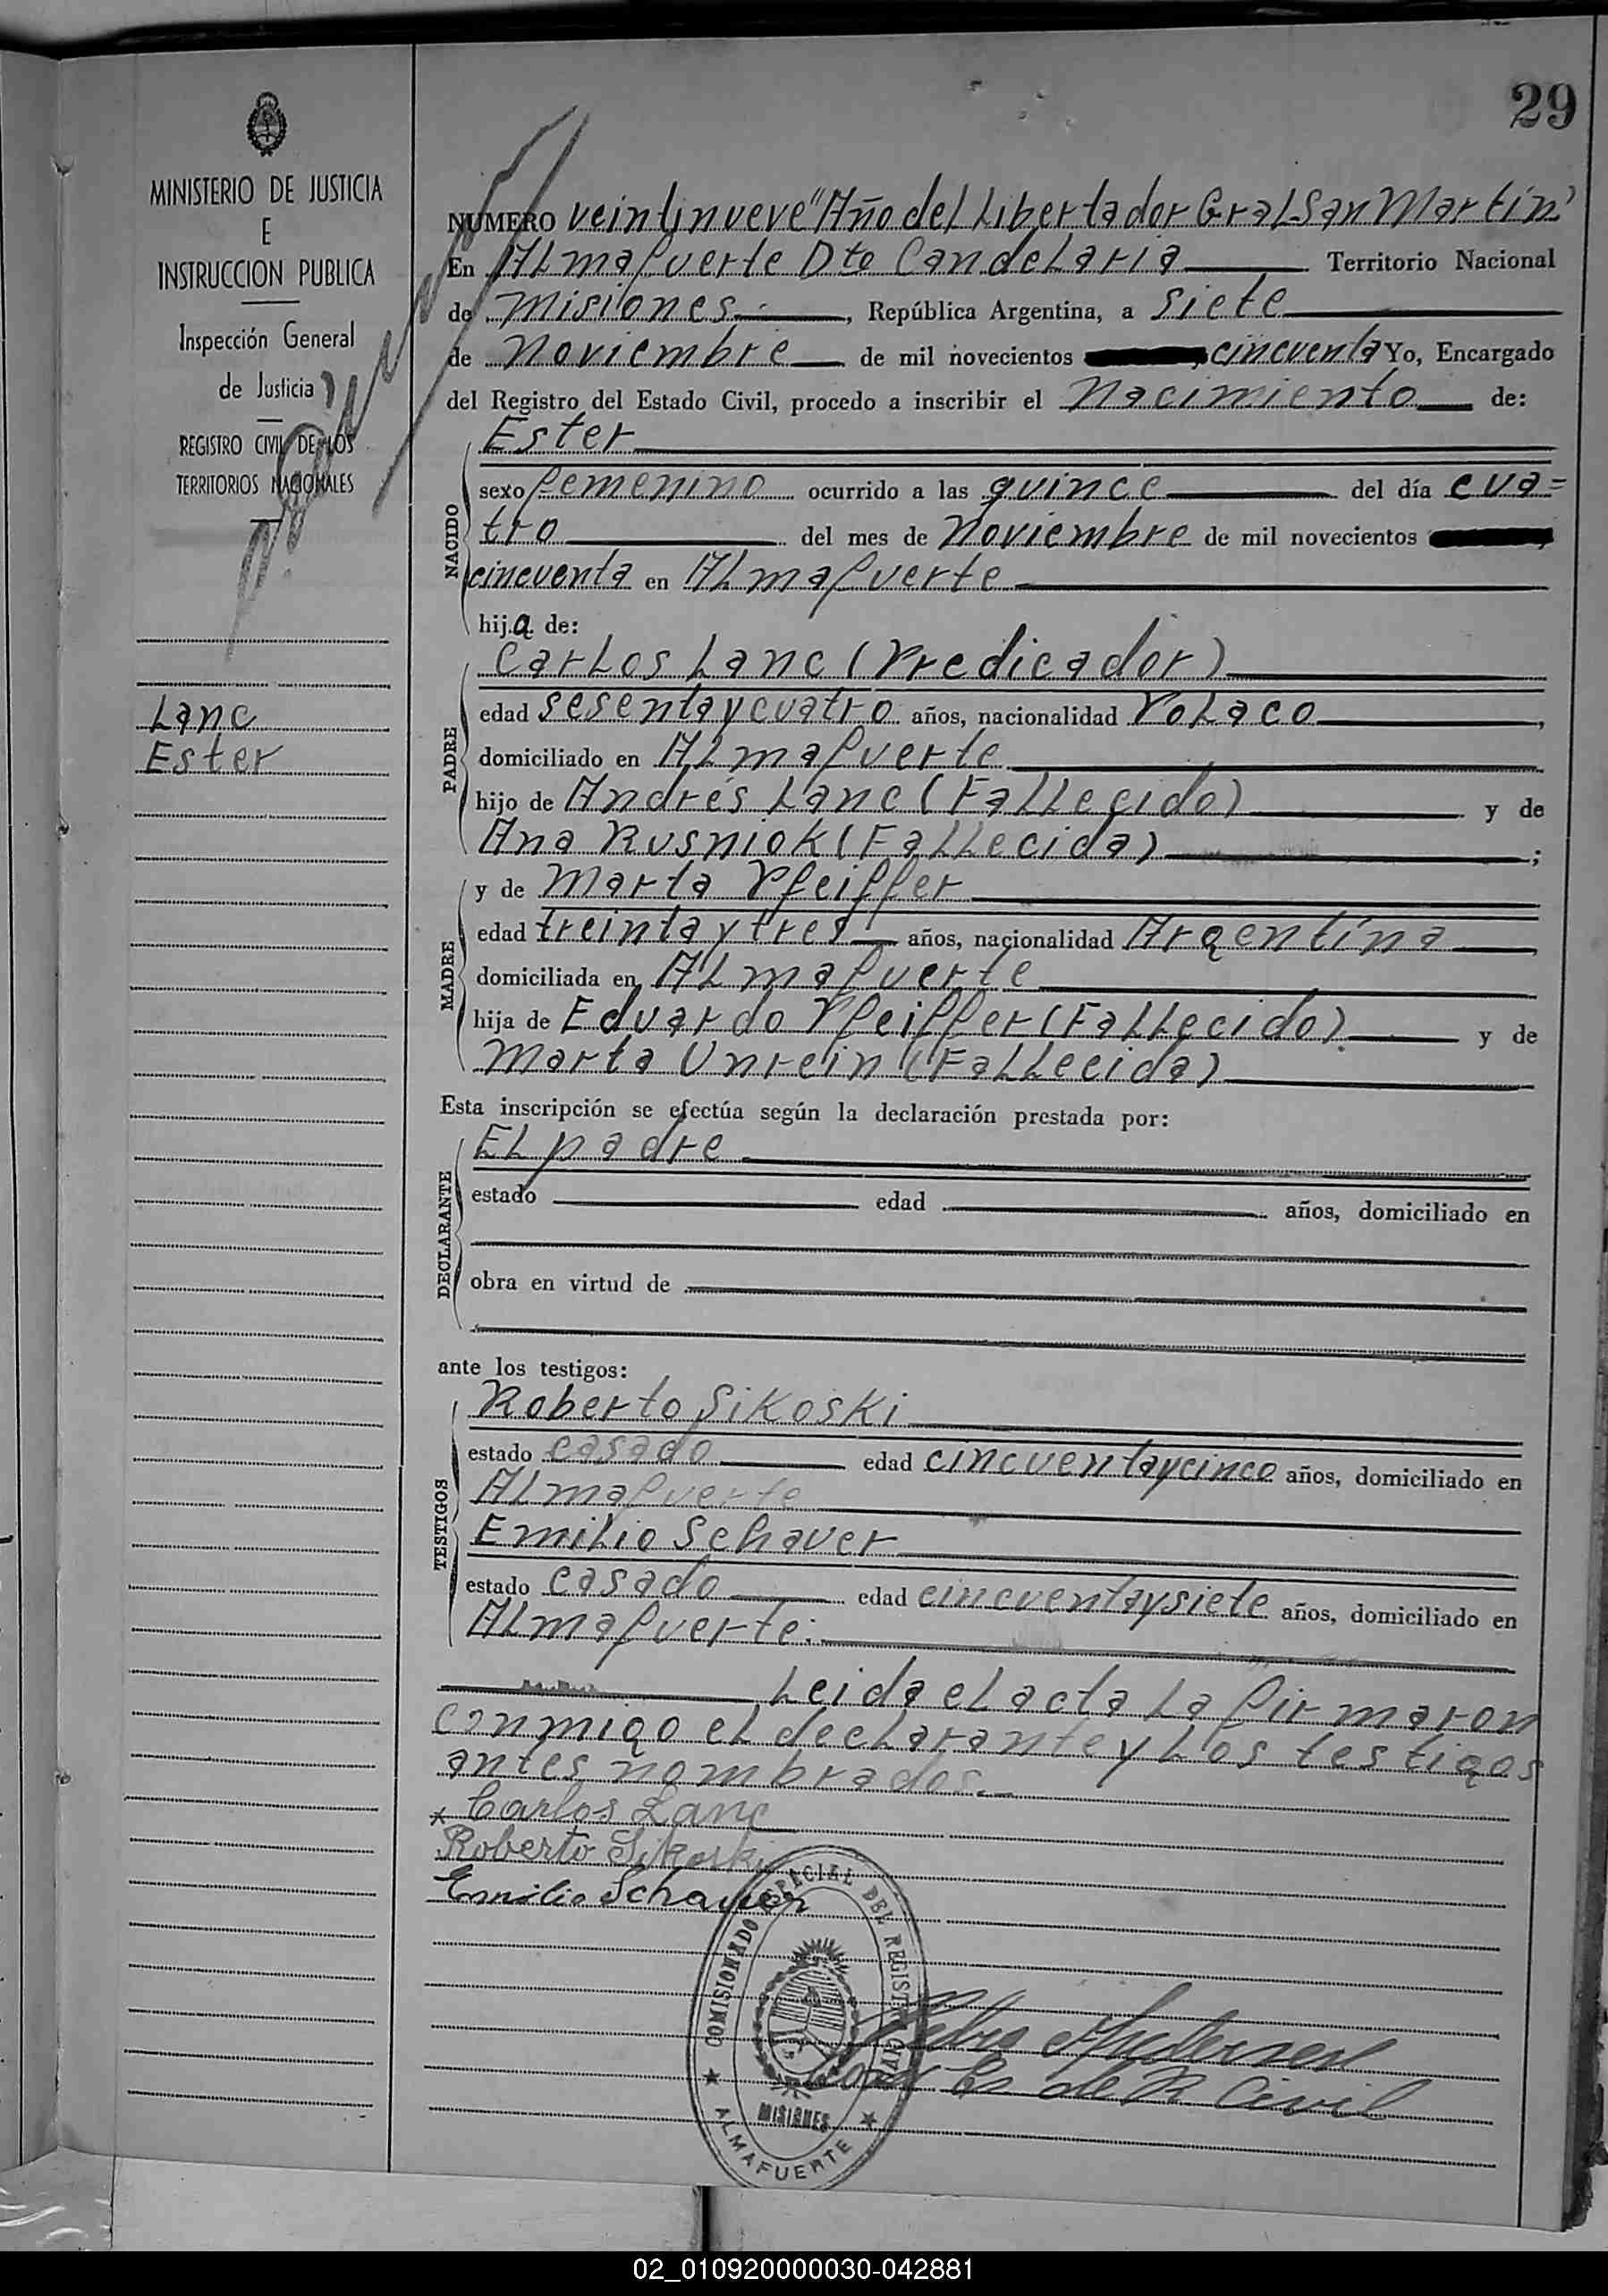 29
MINISTERIO DE JUSTICIA
E
INSTRUCCION PUBLICA
Inspección General
de Justicia
REGISTRO CIVIL DE LOS
TERRITORIOS NACIONALES
Lanc
Ester
NUMERO veintinueve "Año del Libertador Gral San Martín"
En Almafuerte Dto Candelaria Territorio Nacional
de Misiones.-, República Argentina, a siete
de Noviembre de mil novecientos cincuenta Yo, Encargado
del Registro del Estado Civil, procedo a inscribir el Nacimiento de:
NACIDO
Ester
sexo femenino ocurrido a las quince del día cua=
tro del mes de Noviembre de mil novecientos
cincuenta en Almafuerte
hija de:
PADRE
Carlos Lanc (Predicador)
edad sesentaycuatro años, nacionalidad Polaco,
domiciliado en Almafuerte
hijo de Andrés Lanc (Fallecido) y de
Ana Rusniok (Fallecida);
MADRE
y de Marta Pfeiffer
edad treintaytres años, nacionalidad Argentína,
domiciliada en Almafuerte
hija de Eduardo Pfeiffer (Fallecido) y de
Marta Unrein (Fallecida)
Esta inscripción se efectúa según la declaración prestada por:
DECLARANTE
El padre
estado edad años, domiciliado en
obra en virtud de
ante los testigos:
TESTIGOS
Roberto Sikoski
estado casado edad cincuentaycinco años, domiciliado en
Almafuerte
Emilio Schauer
estado casado edad cincuentaysiete años, domiciliado en
Almafuerte:
Leida el acta la firmaron
conmigo el declarante y los testigos
antes nombrados.-
x Carlos Lanc
Roberto Sikoski
Emilio Schauer
COMISIONADO ESPECIAL DEL REGISTRO CIVIL
MISIONES
ALMAFUERTE
Pedro Andersen
de R. Civil
02_010920000030-042881